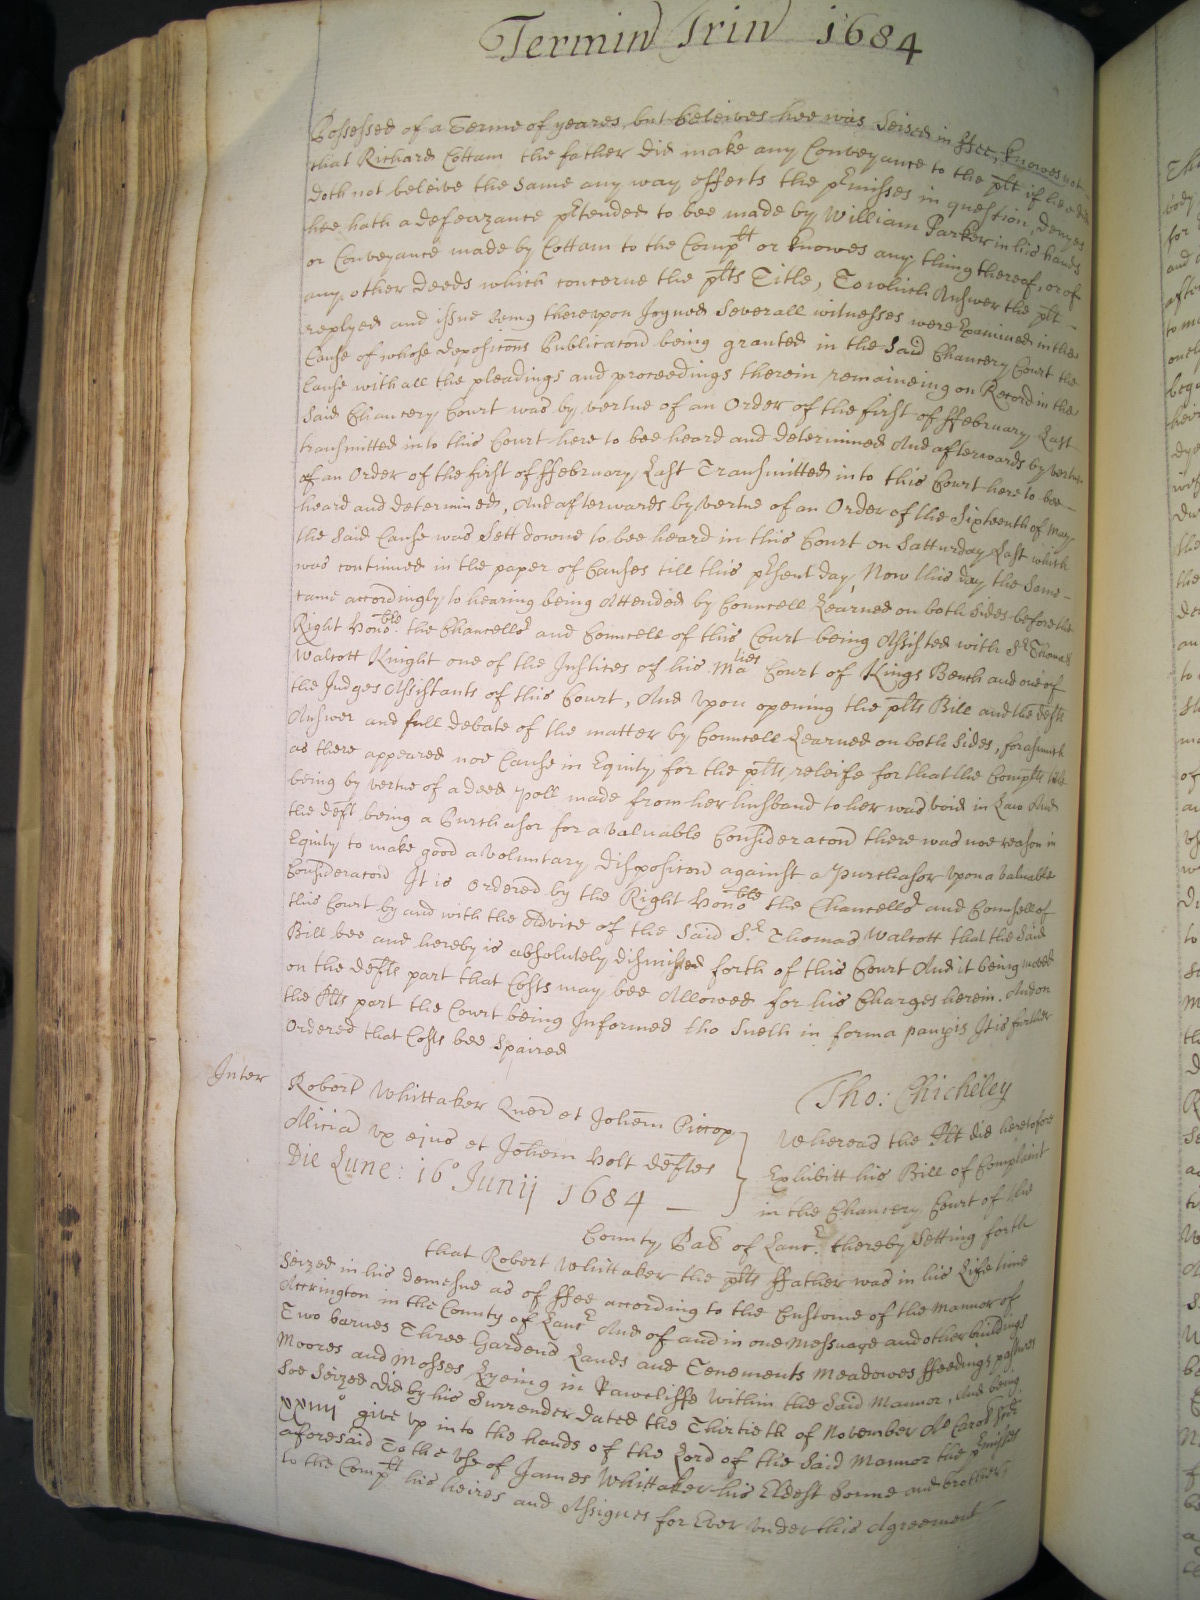 Termino Trin 1684
Possessed of a Terme of yeares but beleives hee was Seised in ffee, knowes not
that Richard Cottam the father did make any Conveyance to the plt if hee did
doth not beleive the same any way effects the p'misses in question, denyes
hee hath a defeazance p'tended to bee made by William Parker in his hands
or Conveyance made by Cottam to the Compltt or knowes any thing thereof, or of
any other deeds which concerne the plts Title, To which Answer the plt
replyed and issue being thereupon Joyned Severall witnesses were Examined in the
Cause of whose deposicons Publicacon being granted in the said Chancery Court the
Cause with all the pleadings and proceedings therein remaineing on Record in the
Said Chancery Court was by vertue of an Order of the first of ffebruary Last
transmitted into this Court here to bee heard and determined And afterwards by vertue
of an Order of the first of ffebruary Last Transmitted into this Court here to bee
heard and determined, And afterwards by vertue of an Order of the Sixteenth of May
the Said Cause was Sett downe to bee heard in this Court on Satturday Last which
was continued in the paper of Causes till this p'sent day Now this day the Same
came accordingly to hearing being Attended by Councell Learned on both Sides before the
Right Honoble the Chancellor and Councell of this Court being Assisted with Sr Thomas
Walcott Knight one of the Justices of his Maties Court of Kings Bench and one of
the Judges Assistants of this Court, And upon opening the plts Bill and the defts
Answer and full debate of the matter by Councell Learned on both Sides, forasmuch
as there appeared noe Cause in Equity for the plts releife for that the Complts title
being by vertue of a deed Poll made from her husband to her was void in Law And
the deft being a Purchasor for a valuable Consideracon there was noe reason in
Equity to make good a voluntary disposicon against a Purchasor upon a valuable
Consideracon It is Ordered by the Right Honoble the Chancellor and Counsell of
this Court by and with the Advice of the Said Sr Thomas Walcott that the Said
Bill bee and hereby is absolutely dismissed forth of this Court And it being moved
on the defts part that Costs may bee Allowed for his Charges herein. And on
the Plts part the Court being Informed tho Sueth in forma paupis It is further
Ordered that Costs bee Spaired
Tho: Chicheley
Inter
Robert Whittaker Quer et Johem Pittop
Alicia ux ejus et Johem Holt defles
Die Lune: 16o Junij 1684
Whereas the Plt did heretofore
Exhibitt his Bill of Complaint
in the Chancery Court of the
County Pall of Lancr thereby Setting forth
that Robert Whittaker the plts ffather was in his Lifetime
Seized in his demesne as of ffee according to the Custome of the Mannor of
Accrington in the County of Lancr And of and in one Messuage and other buildings
Two barnes Three Gardens Lands and Tenements Meadowes ffeedings pastures
Moores and Mosses Lyeing in Rawcliffe within the Said Mannor, And being
Soe Seized did by his Surrender dated the Thirtieth of November Ao Carol Scdi
xxiiijo give up into the hands of the Lord of the Said Mannor the p'misses
aforesaid To the Use of James Whittaker his Eldest Sonne and brother
to the Compltt his heires and Assignes for Ever Under this Agreement